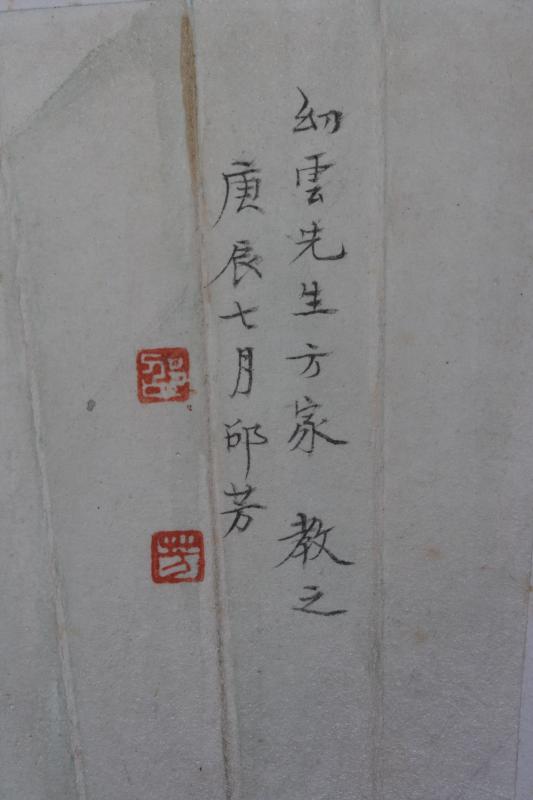 幼雲先生方家 教之
庚辰七月邵芳
邵
芳